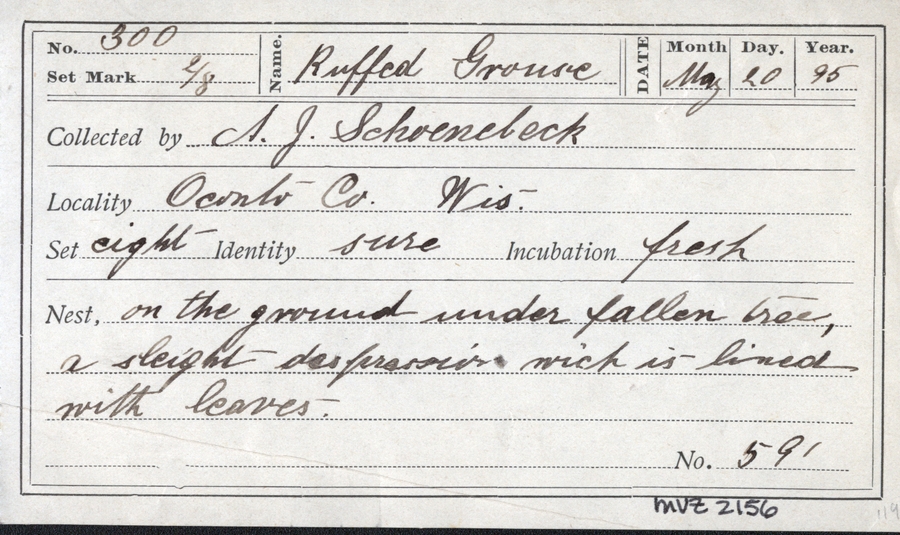 No. 300 Name. Ruffed Grouse DATE Month Day. Year.
Set Mark 2/8 May 20 95
Collected by A. J. Schoenebeck
Locality Oconto Co. Wis.
Set eight Identity sure Incubation fresh
Nest, on the ground under fallen tree,
a sleight despression wich is lined
with leaves.
No. 591
MVZ 2156